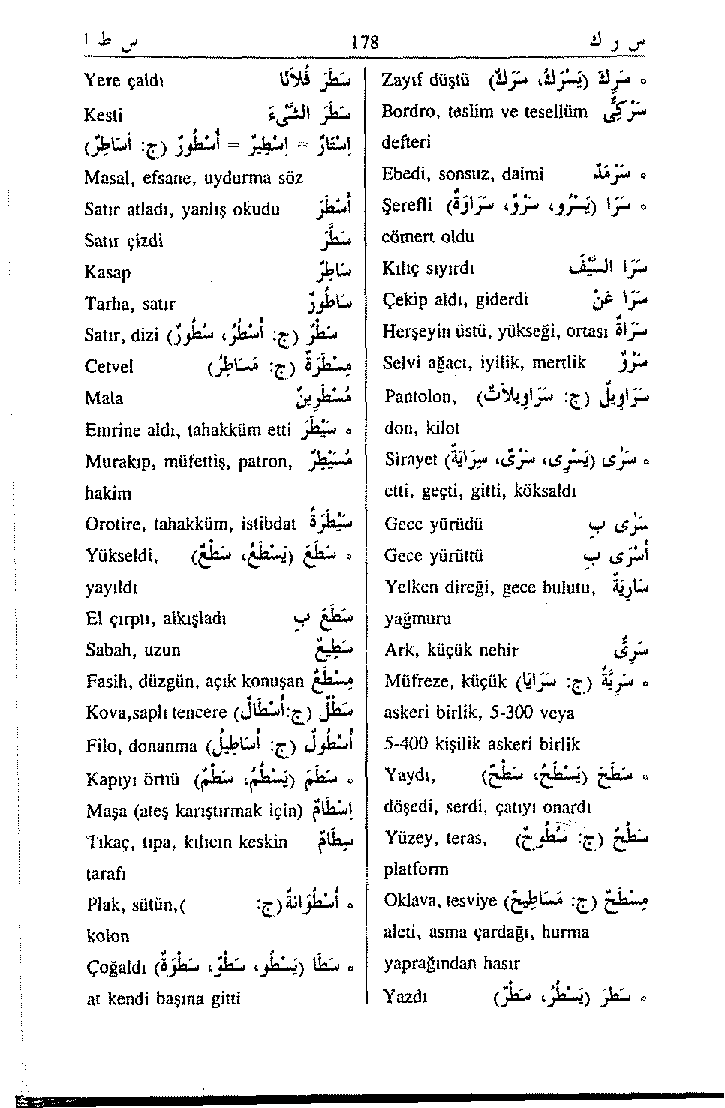 س ر ك 178 س ط ا
Zayıf düştü ° سَرِكَ (يَسْرَكُ، سَرَكٌ)
Bordro, teslim ve tesellüm سَرْكِيٌّ
defteri
Ebedi, sonsuz, daimi ° سَرْمَدٌ
Şerefli ° سَرَا (يَسْرُو، سَرْوٌ، سَرَاوَةٌ)
cömert oldu
Kılıç sıyırdı سَرَا السَّيْفَ
Çekip aldı, giderdi سَرَا عَنْ
Herşeyin üstü, yükseği, ortası سَرَاةٌ
Selvi ağacı, iyilik, mertlik سَرْوٌ
Pantolon, سَرَاوِيلُ (ج: سَرَاوِيلَاتٌ)
don, kilot
Sirayet ° سَرَى (يَسْرِى، سَرْىٌ، سِرَايَةٌ)
etti, geçti, gitti, köksaldı
Gece yürüdü سَرَى بِ
Gece yürüttü أَسْرَى بِ
Yelken direği, gece bulutu, سَارِيَةٌ
yağmuru
Ark, küçük nehir سَرِيٌّ
Müfreze, küçük ° سَرِيَّةٌ (ج: سَرَايَا)
askeri birlik, 5-300 veya
5-400 kişilik askeri birlik
Yaydı, ° سَطَحَ (يَسْطَحُ، سَطْحٌ)
döşedi, serdi, çatıyı onardı
Yüzey, teras, سَطْحٌ (ج: سُطُوحٌ)
platform
Oklava, tesviye مِسْطَحٌ (ج: مَسَاطِيحُ)
aleti, asma çardağı, hurma
yaprağından hasır
Yazdı ° سَطَرَ (يَسْطُرُ، سَطْرٌ)
Yere çaldı سَطَرَ فُلَانًا
Kesti سَطَرَ الشَّيْءَ
إِسْتَارٌ = إِسْطِيرٌ = أُسْطُورٌ (ج: أَسَاطِرُ)
Masal, efsane, uydurma söz
Satır atladı, yanlış okudu أَسْطَرَ
Satır çizdi سَطَّرَ
Kasap سَاطِرٌ
Tarha, satır سَاطُورٌ
Satır, dizi سَطْرٌ (ج: أَسْطُرٌ، سُطُورٌ)
Cetvel مِسْطَرَةٌ (ج: مَسَاطِرُ)
Mala مُسْطَرِينٌ
Emrine aldı, tahakküm etti ° سَيْطَرَ
Murakıp, müfettiş, patron, مُسَيْطِرٌ
hakim
Orotire, tahakküm, istibdat سَيْطَرَةٌ
Yükseldi, ° سَطَعَ (يَسْطَعُ، سَطْعٌ)
yayıldı
El çırptı, alkışladı سَطَعَ بِ
Sabah, uzun سَطِيعٌ
Fasih, düzgün, açık konuşan مِسْطَعٌ
Kova, saplı tencere سَطْلٌ (ج: أَسْطَالٌ)
Filo, donanma أُسْطُولٌ (ج: أَسَاطِيلُ)
Kapıyı örttü ° سَطَمَ (يَسْطُمُ، سَطْمٌ)
Maşa (ateş karıştırmak için) إِسْطَامٌ
Tıkaç, tıpa, kılıcın keskin سِطَامٌ
tarafı
Plak, sütün, ° أُسْطُوَانَةٌ (ج: )
kolon
Çoğaldı ° سَطَا (يَسْطُو، سَطْوٌ، سَطْوَةٌ)
at kendi başına gitti